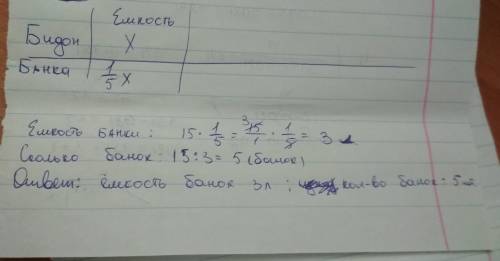 Емкость
Бидон X
Банка 1/5 X
Емкость банки: 15 · 1/5 = 15/1 · 1/5 = 3 л
Сколько банок: 15 : 3 = 5 (банок)
Ответ: ёмкость банок 3л ; кол-во банок : 5